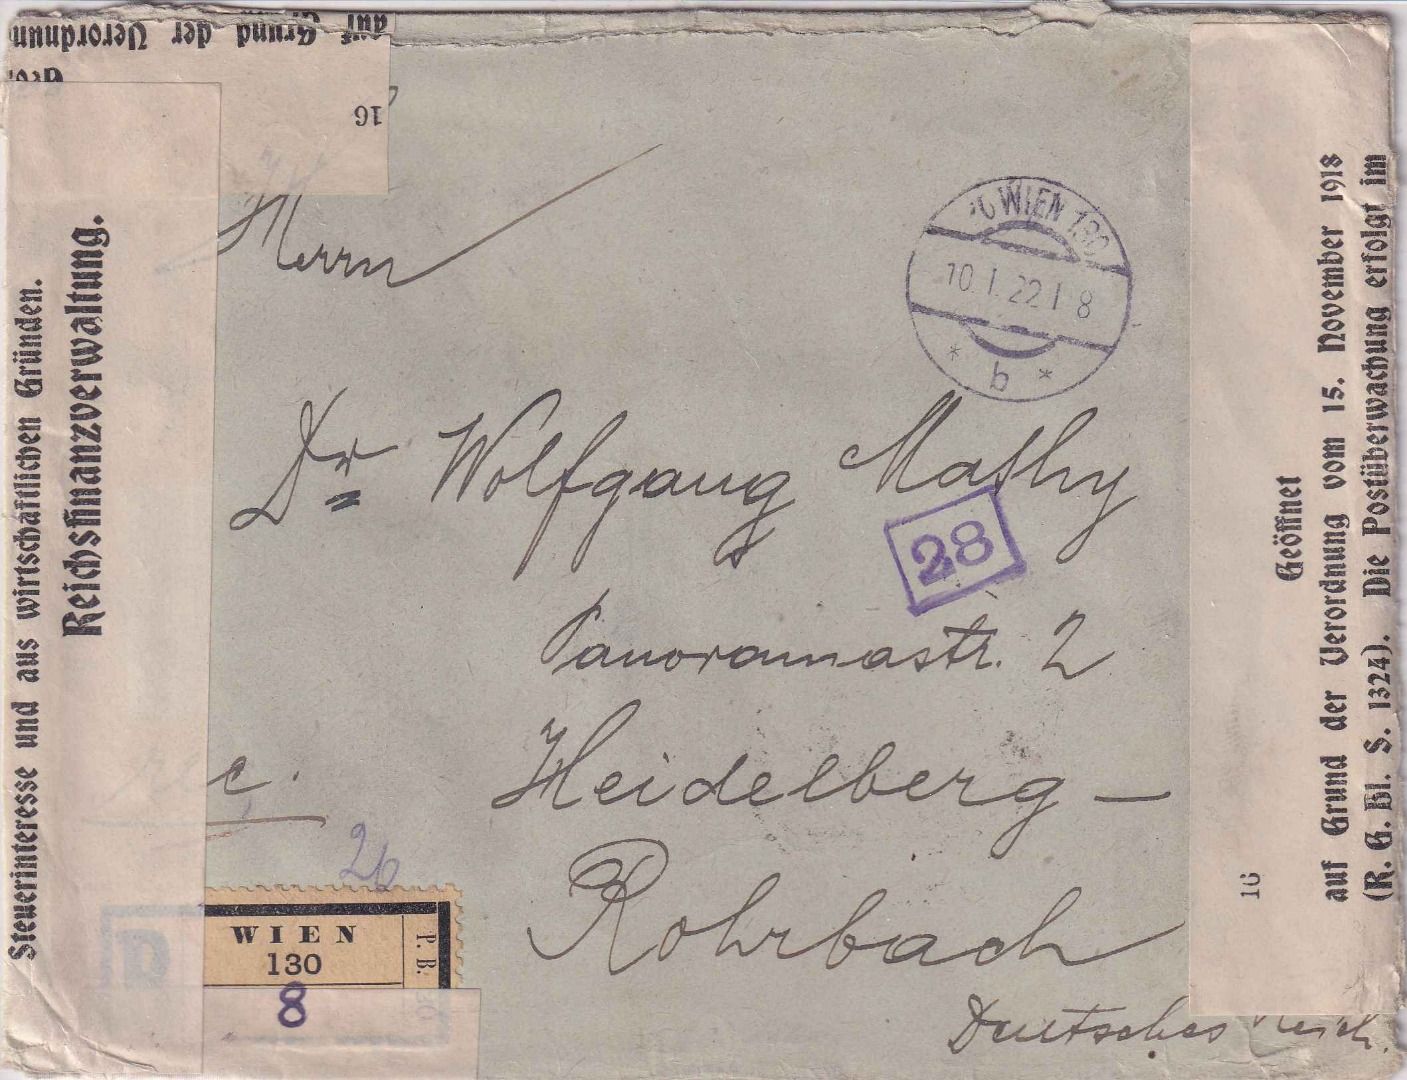 auf Grund der Verordnung
16
Steuerinteresse und aus wirtschaftlichen Gründen.
Reichsfinanzverwaltung.
WIEN 130
10.I.22 I 8
* b *
Herrn
Dr Wolfgang Mathy
28
Panoramastr. 2
Heidelberg –
Rohrbach
Deutsches Reich.
26
WIEN
130
P. B.
8
Geöffnet
auf Grund der Verordnung vom 15. November 1918
(R. G. Bl. S. 1324). Die Postüberwachung erfolgt im
16